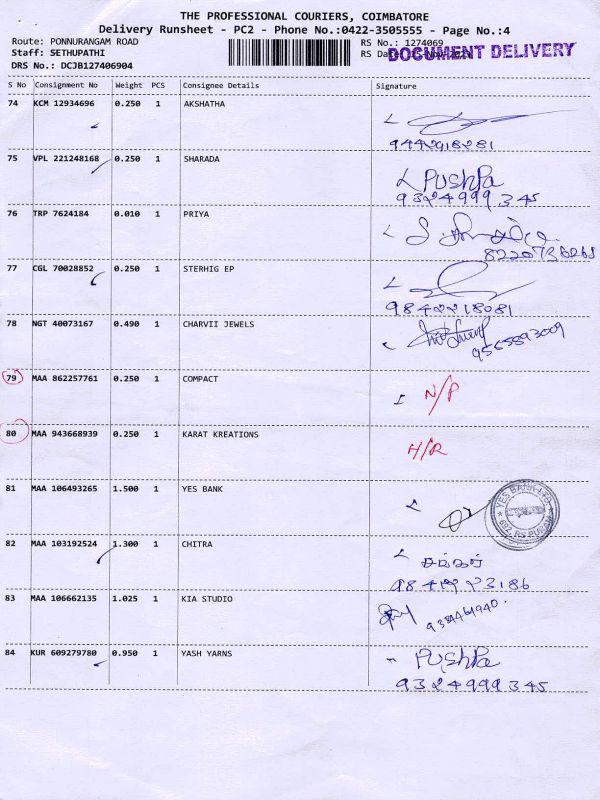 THE PROFESSIONAL COURIERS, COIMBATORE
Delivery Runsheet - PC2 - Phone No.:0422-3505555 - Page No.:4
Route: PONNURANGAM ROAD RS No.: 1274069
Staff: SETHUPATHI RS Da DOCUMENT DELIVERY
DRS No.: DCJB127406904
S No Consignment No Weight PCS Consignee Details Signature
74 KCM 12934696 0.250 1 AKSHATHA
9442918281
75 VPL 221248168 0.250 1 SHARADA
PUSHPa
9324999345
76 TRP 7624184 0.010 1 PRIYA
77 CGL 70028852 0.250 1 STERHIG EP
9842218081
78 NGT 40073167 0.490 1 CHARVII JEWELS
79 MAA 862257761 0.250 1 COMPACT
N/P
80 MAA 943668939 0.250 1 KARAT KREATIONS
H/R
81 MAA 106493265 1.500 1 YES BANK
YES BANK LTD.
82 MAA 103192524 1.300 1 CHITRA
83 MAA 106662135 1.025 1 KIA STUDIO
84 KUR 609279780 0.950 1 YASH YARNS
PUSHPa
9324999345